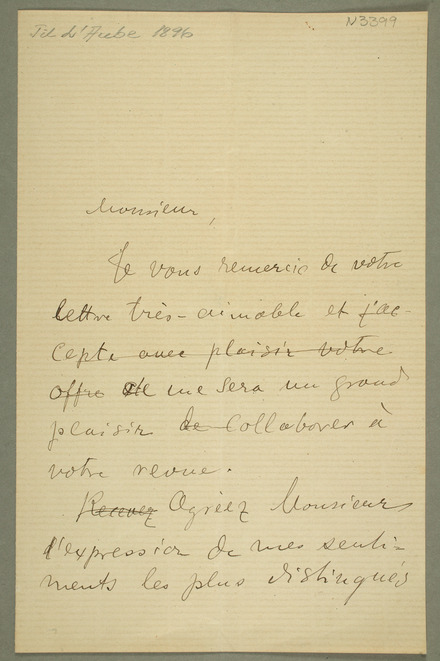 Fil d'Aube 1896
N3399
Monsieur,
Je vous remercie de votre
lettre très-aimable et j'ac-
cepte avec plaisir votre
offre Il me sera un grand
plaisir de Collaborer à
votre revue.
Recevez Agréez Monsieur
l'expression de mes senti-
ments les plus distingués